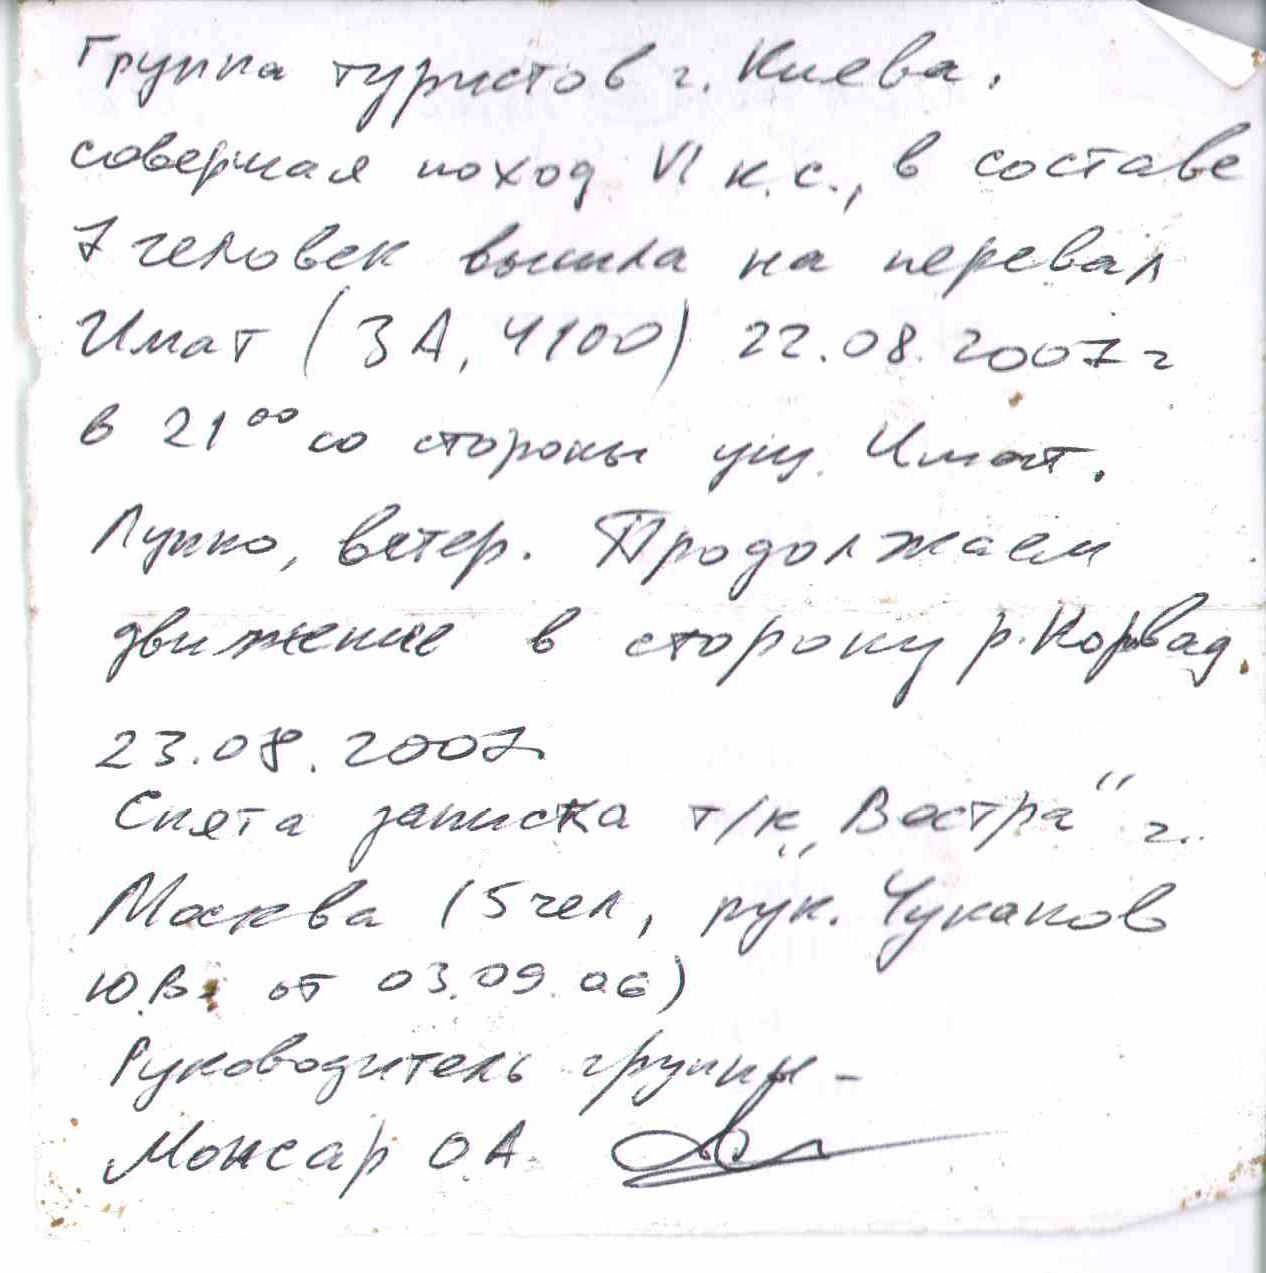 Группа туристов г. Киева,
совершая поход VI к.с., в составе
7 человек вышла на перевал
Имат (3А, 4100) 22.08.2007г
в 21⁰⁰ со стороны ущ. Имат.
Лунно, ветер. Продолжаем
движение в сторону р. Корвад.
23.08.2007
Снята записка т/к „Вестра" г.
Москва (5 чел, рук. Чуканов
Ю.В. от 03.09.06)
Руководитель группы -
Монсар О.А.